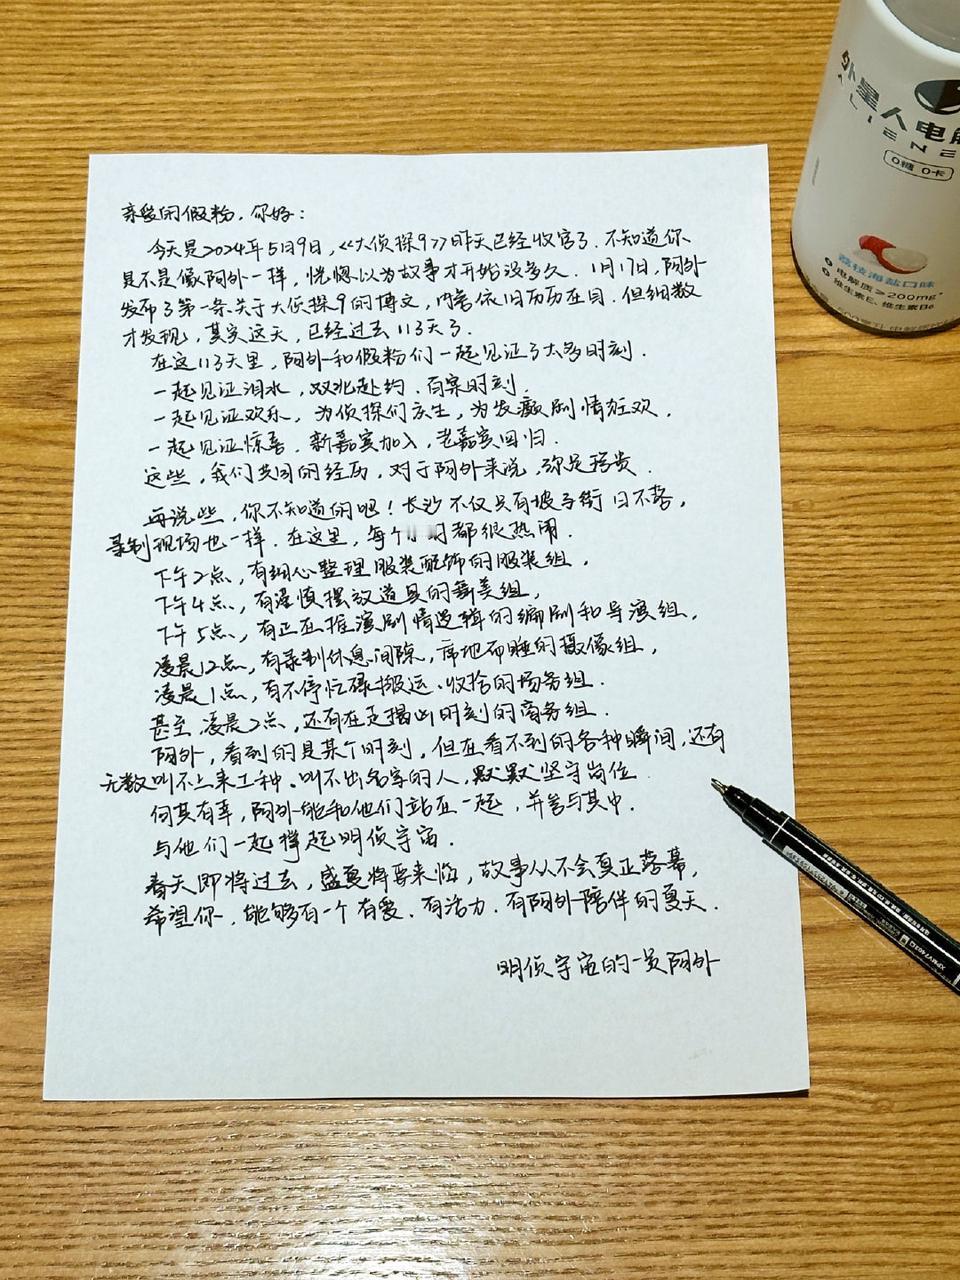 外星人电解
ALIENE
0糖 0卡
荔枝海盐口味
电解质≥200mg
维生素E、维生素B6
亲爱的假粉，你好：
今天是2024年5月9日，《大侦探9》昨天已经收官了．不知道你
是不是像阿外一样，恍惚以为故事才开始没多久．1月17日，阿外
发布了第一条关于大侦探9的博文，内容依旧历历在目．但细数
才发现，其实这天，已经过去113天了．
在这113天里，阿外和假粉们一起见证了太多时刻．
一起见证泪水，双北赴约、百案时刻．
一起见证欢乐，为侦探们庆生，为发癫剧情狂欢，
一起见证惊喜．新嘉宾加入，老嘉宾回归．
这些，我们共同的经历，对于阿外来说，弥足珍贵．
再说些，你不知道的吧！长沙不仅只有坡子街日不落，
录制现场也一样．在这里，每个小时都很热闹．
下午2点，有细心整理服装配饰的服装组，
下午4点，有谨慎摆放道具的舞美组，
下午5点，有正在推演剧情逻辑的编剧和导演组，
凌晨12点，有录制休息间隙，席地而睡的摄像组，
凌晨1点，有不停忙碌搬运、收拾的场务组．
甚至凌晨2点，还有在走播出时刻的商务组．
阿外，看到的是某个时刻，但在看不到的各种瞬间，还有
无数叫不上来工种、叫不出名字的人，默默坚守岗位．
何其有幸，阿外能和他们站在一起，并参与其中．
与他们一起撑起明侦宇宙．
春天即将过去，盛夏将要来临，故事从不会真正落幕，
希望你，能够有一个有爱、有活力、有阿外陪伴的夏天．
明侦宇宙的一员阿外